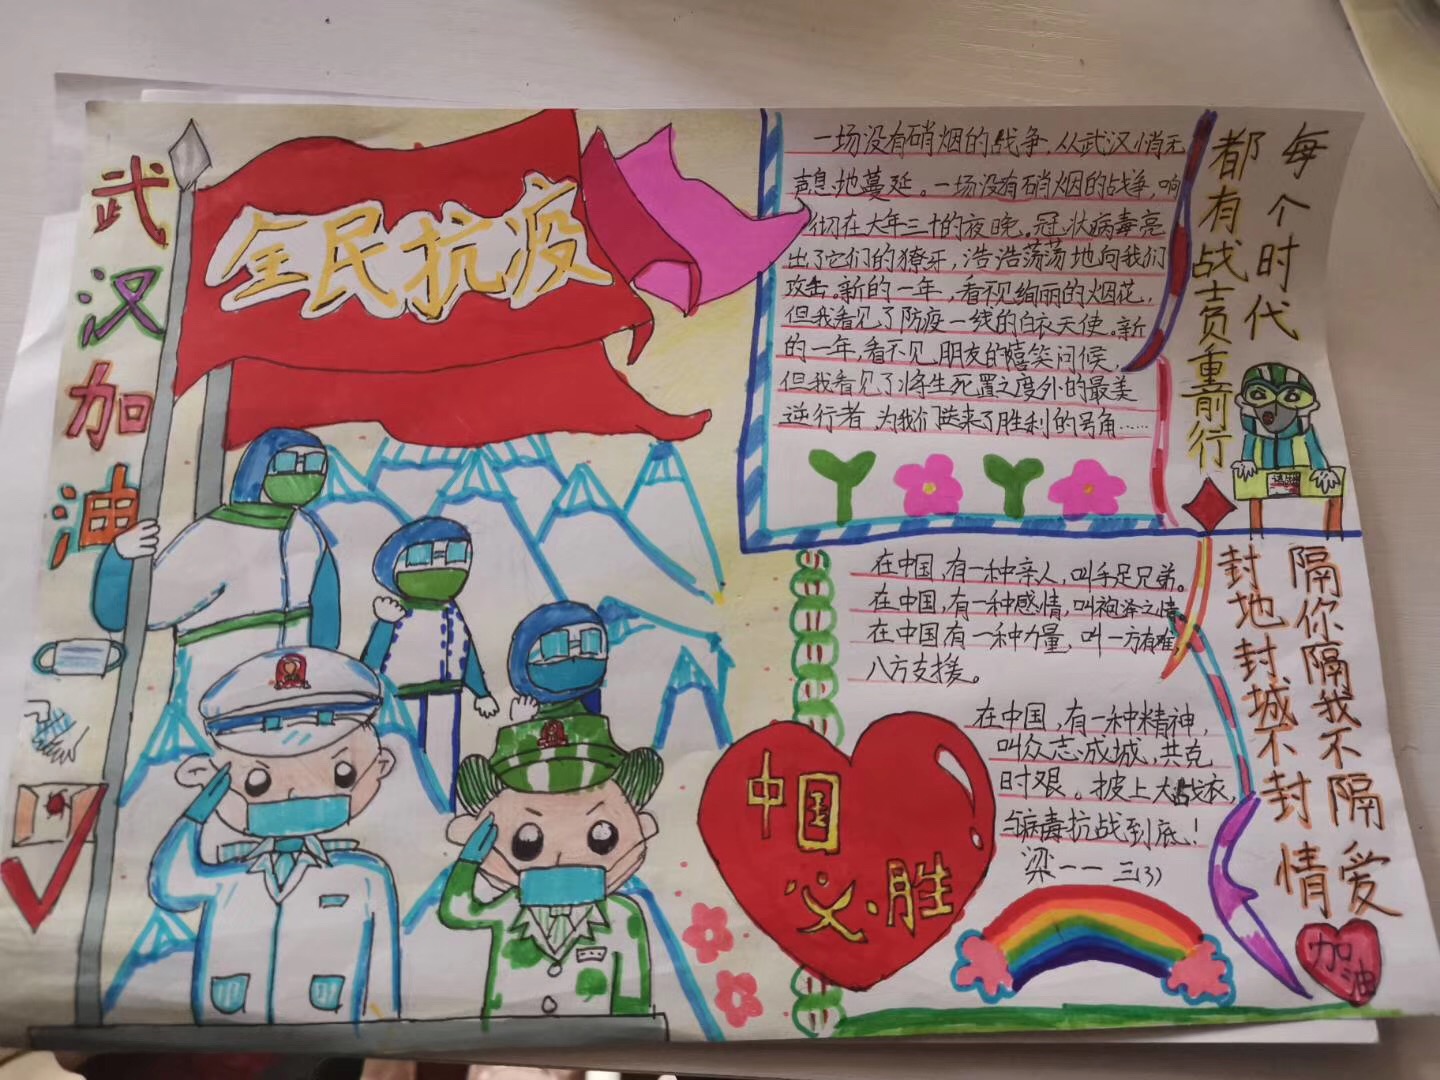 武汉加油
全民抗疫
一场没有硝烟的战争,从武汉悄无
声息地蔓延。一场没有硝烟的战争,响
彻在大年三十的夜晚。冠状病毒亮
出了它们的獠牙,浩浩荡荡地向我们
攻击。新的一年,看不见绚丽的烟花,
但我看见了防疫一线的白衣天使。新
的一年,看不见朋友的嘻笑问候,
但我看见了将生死置之度外的最美
逆行者 为我们送来了胜利的号角……
每个时代
都有战士负重前行
在中国,有一种亲人,叫手足兄弟。
在中国,有一种感情,叫袍泽之情
在中国有一种力量,叫一方有难,
八方支援。
在中国,有一种精神,
叫众志成城,共克
时艰。披上大战衣,
与病毒抗战到底!
梁一一 三(3)
隔你隔我不隔爱
封地封城不封情
中国
必胜
加油